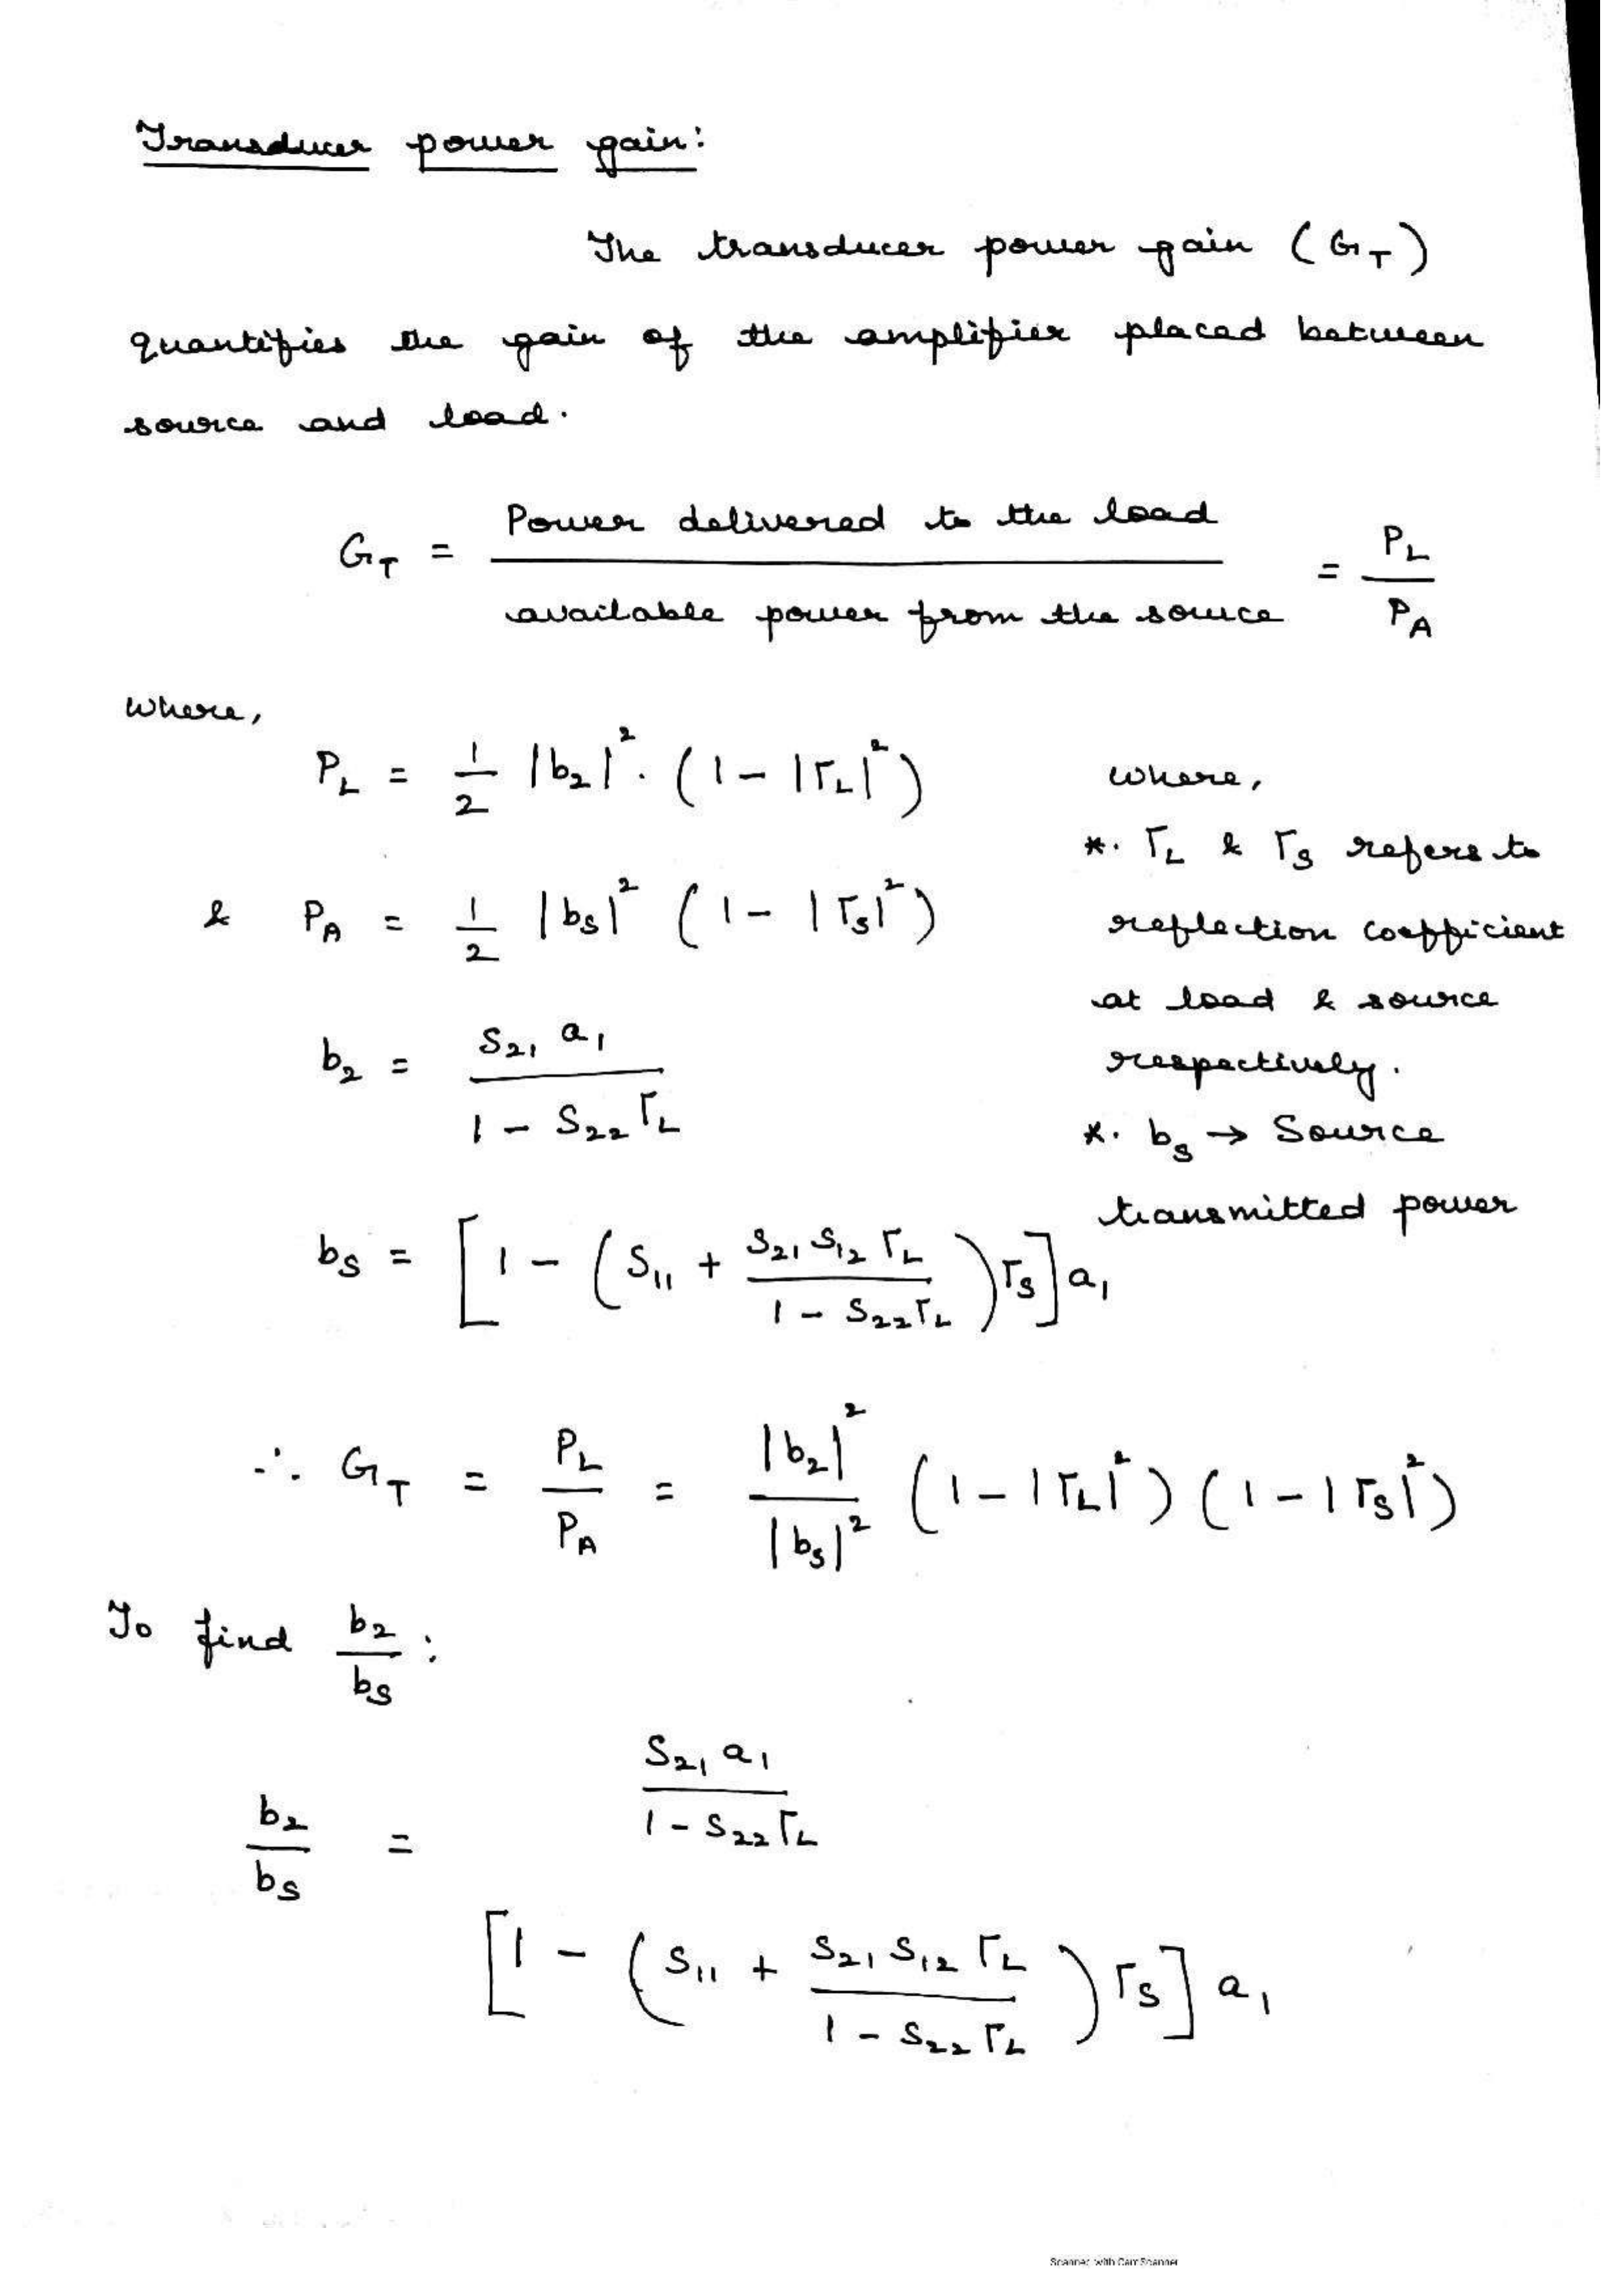 Transducer power gain:
The transducer power gain (G_T)
quantifies the gain of the amplifier placed between
source and load.
G_T = Power delivered to the load / available power from the source = P_L / P_A
where,
P_L = 1/2 |b_2|^2 . (1 - |Γ_L|^2)
& P_A = 1/2 |b_S|^2 (1 - |Γ_S|^2)
b_2 = S_21 a_1 / (1 - S_22 Γ_L)
where,
*. Γ_L & Γ_S refers to
reflection coefficient
at load & source
respectively.
*. b_S → Source
transmitted power
b_S = [1 - (S_11 + S_21 S_12 Γ_L / (1 - S_22 Γ_L)) Γ_S] a_1
∴ G_T = P_L / P_A = |b_2|^2 / |b_S|^2 (1 - |Γ_L|^2) (1 - |Γ_S|^2)
To find b_2 / b_S :
b_2 / b_S = (S_21 a_1 / (1 - S_22 Γ_L))
[1 - (S_11 + S_21 S_12 Γ_L / (1 - S_22 Γ_L)) Γ_S] a_1
Scanned with CamScanner